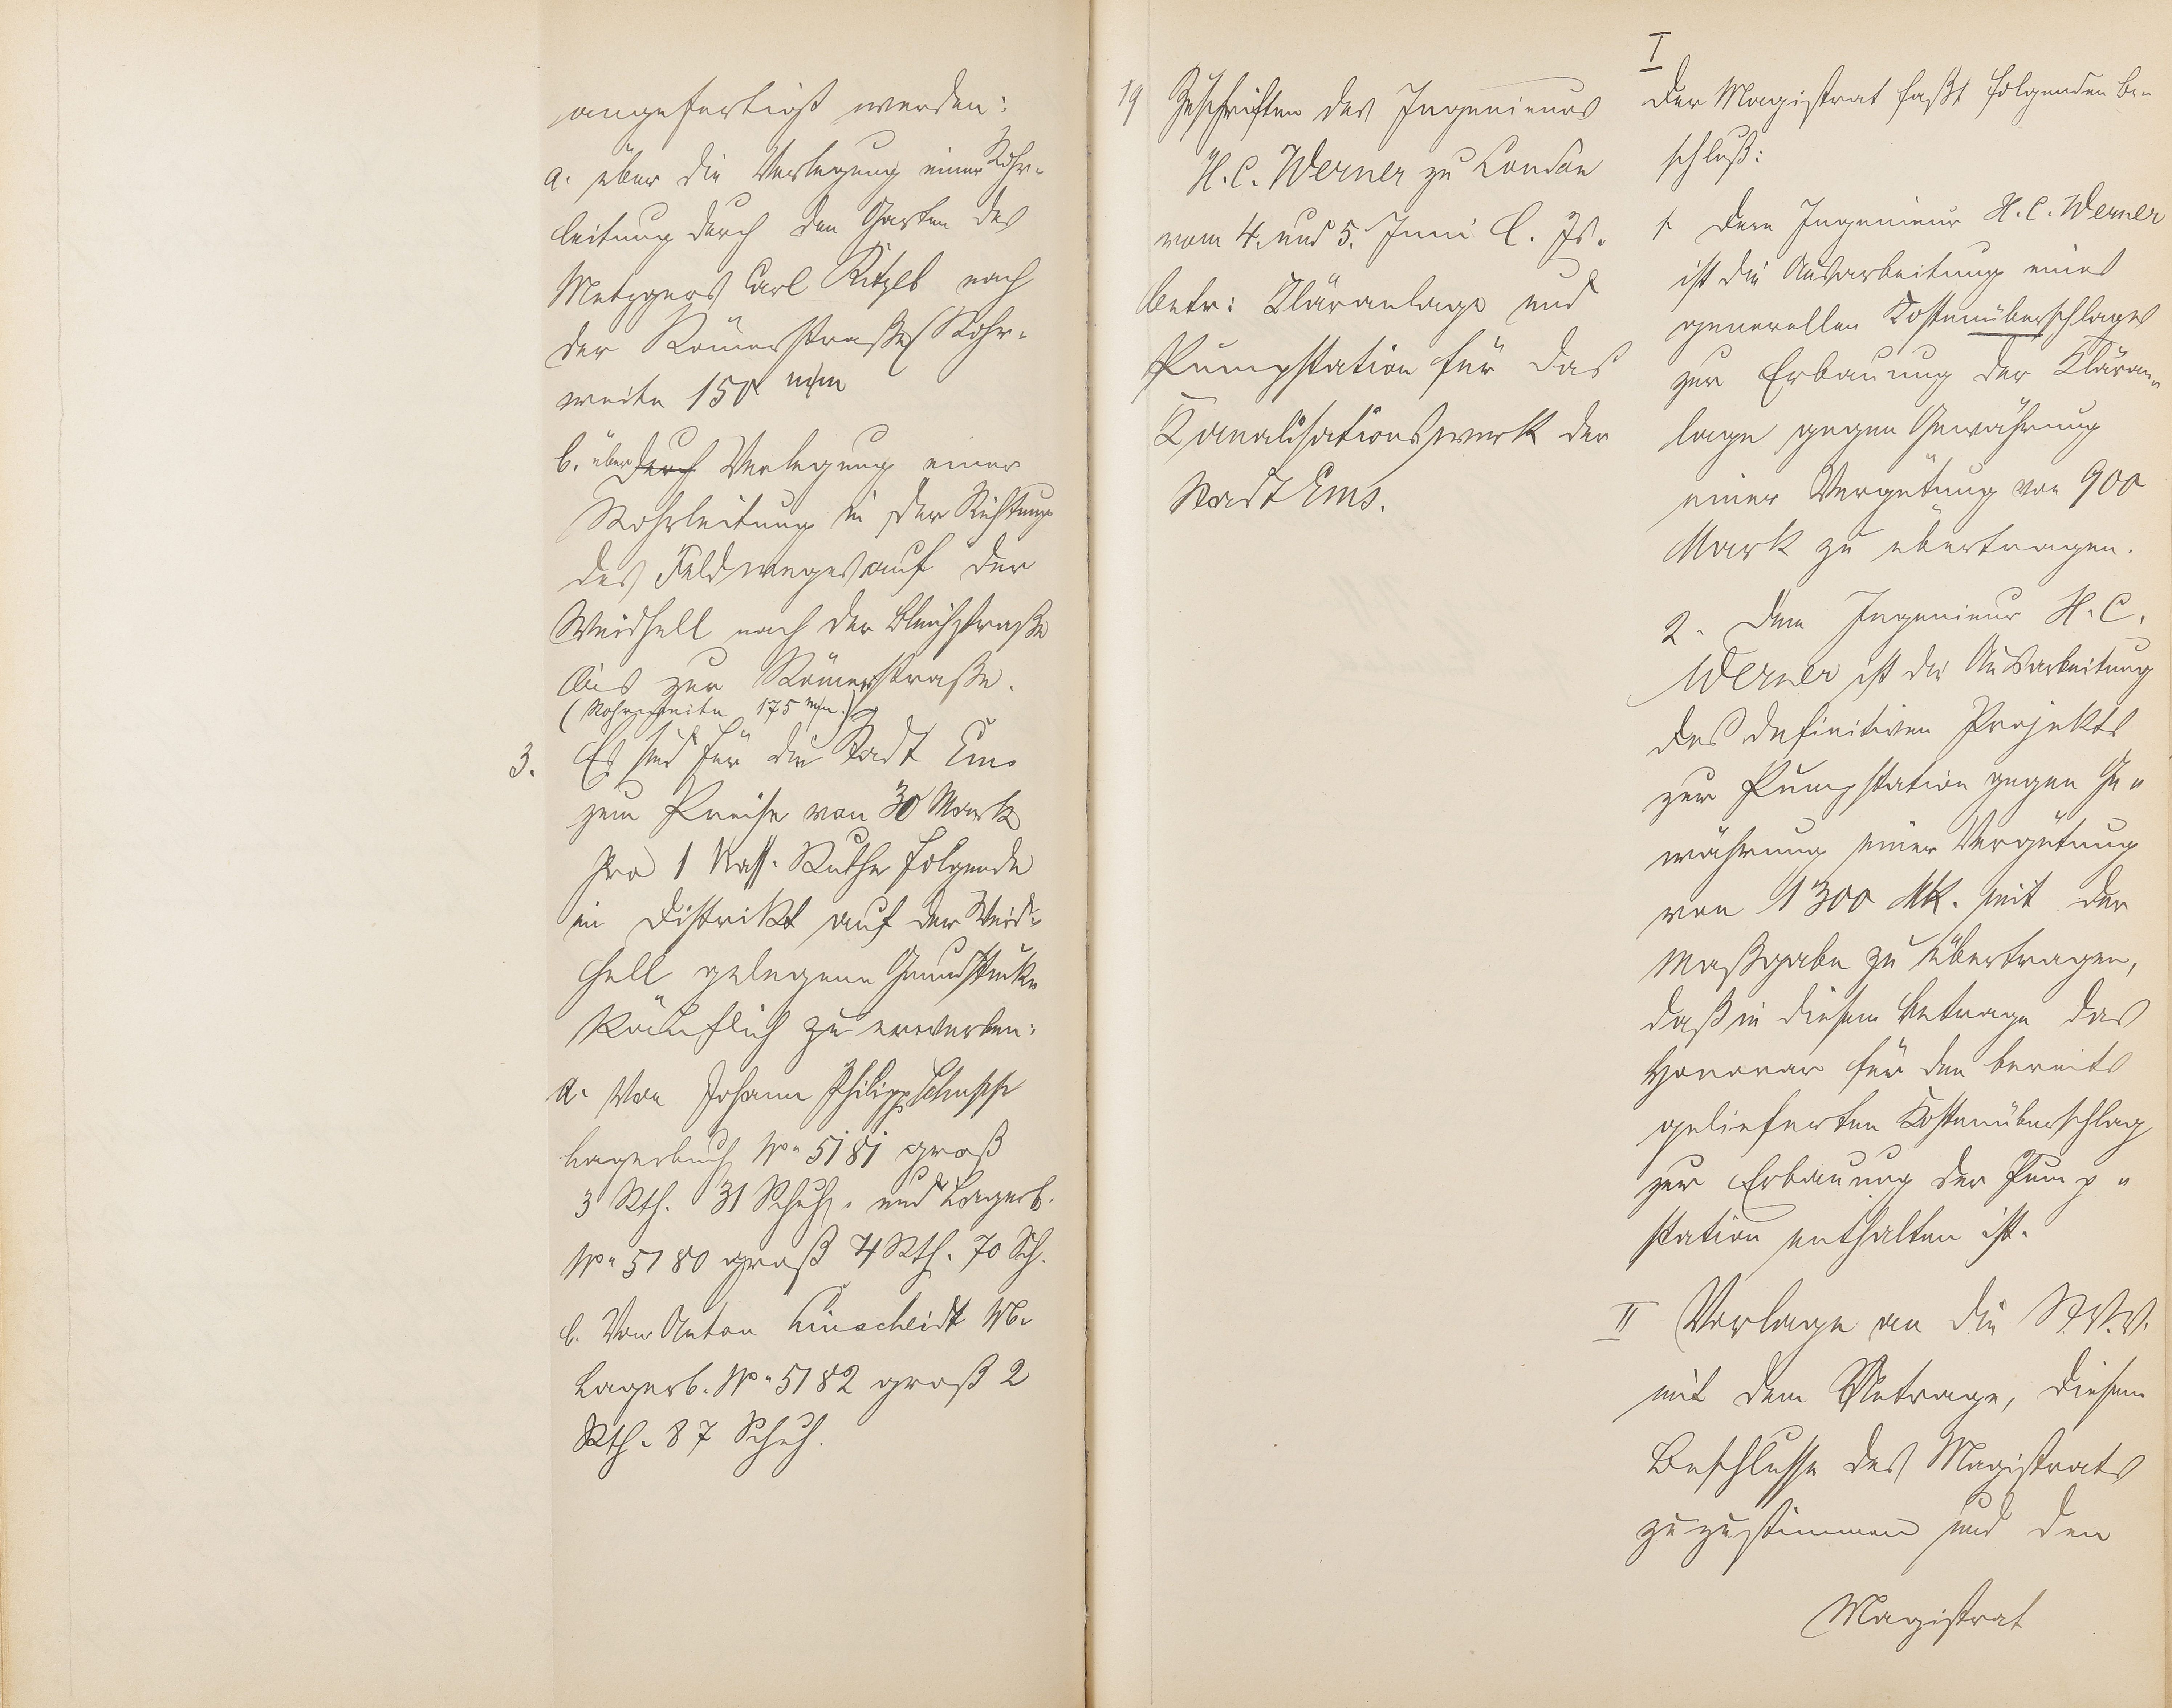 angefertigt werden:
a. über die Verlegung einer Rohr-
leitung durch den Garten des
Metzgers Carl Ritzel nach
der Römerstraße/Rohr-
weite 150 m/m
b. über durch Verlegung einer
Rohrleitung in der Richtung
des Feldweges auf der
Weidhell nach der Bleichstraße
bis zur Römerstraße.
(Rohrweite 175 m/m.)
3. Es sind für die Stadt Ems
zum Preise von 30 Mark
pro 1 Nass. Ruthe folgende
im Distrikt auf der Weid-
hell gelegene Grundstücke
käuflich zu erwerben:
a. Von Johann Philipp
Lagerbuch No 5181 groß
3 Rth. 31 Schuh, und Lagerb.
No 5180 groß 4 Rth. 70 Sch.
b. Von Anton Linscheidt Wb.
Lagerb. No 5182 groß 2
Rth. 87 Schuh.
19 Zuschriften des Ingenieurs
H. C. Werner zu London
vom 4. und 5. Juni l. Js.
betr: Kläranlage und
Pumpstation für das
Kanalisationswerk der
Stadt Ems.
I
Der Magistrat faßt folgenden Be-
schluß:
1. Dem Ingenieur H. C. Werner
ist die Ausarbeitung eines
generellen Kostenüberschlages
zur Erbauung der Kläran-
lage gegen Gewährung
einer Vergütung von 900
Mark zu übertragen.
2. Dem Ingenieur H. C.
Werner ist die Ausarbeitung
des definitiven Projekts
zur Pumpstation gegen Ge-
währung einer Vergütung
von 1300 Mk. mit der
Maßgabe zu übertragen,
daß in diesem Betrage das
Honorar für den bereits
gelieferten Kostenüberschlag
zur Erbauung der Pump-
station enthalten ist.
II Vorlage an die St. V. V.
mit dem Antrage, diesem
Beschlusse des Magistrats
zuzustimmen und den
Magistrat